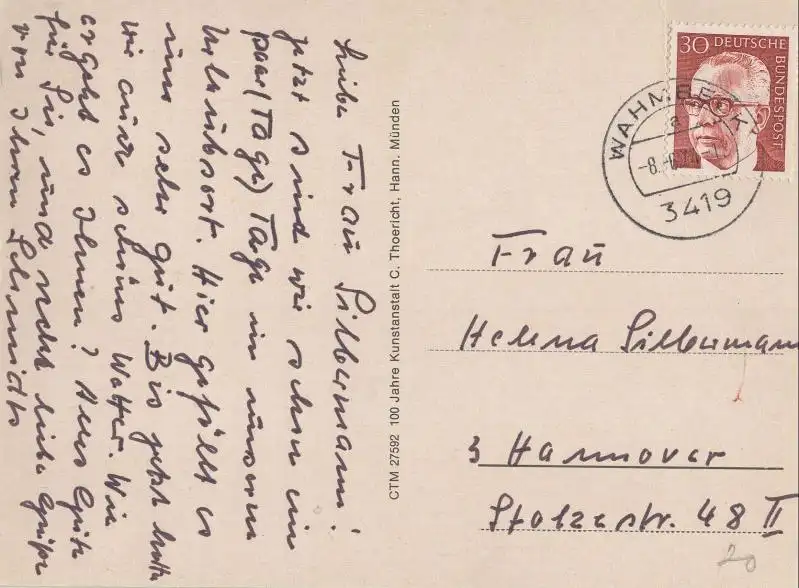 Liebe Frau Silbermann!
Jetzt sind wir schon ein
paar (Tage) Tage in unserem
Urlaubsort. Hier gefällt es
uns sehr gut. Bis jetzt hatten
wir auch schönes Wetter. Wie
ergeht es Ihnen? Alles Gute
für Sie, und recht liebe Grüße
von Ihren Schmidts
CTM 27592 100 Jahre Kunstanstalt C. Thoericht, Hann. Münden
30 DEUTSCHE
BUNDESPOST
3419
Frau
Helena Silbermann
3 Hannover
Stolzestr. 48 II